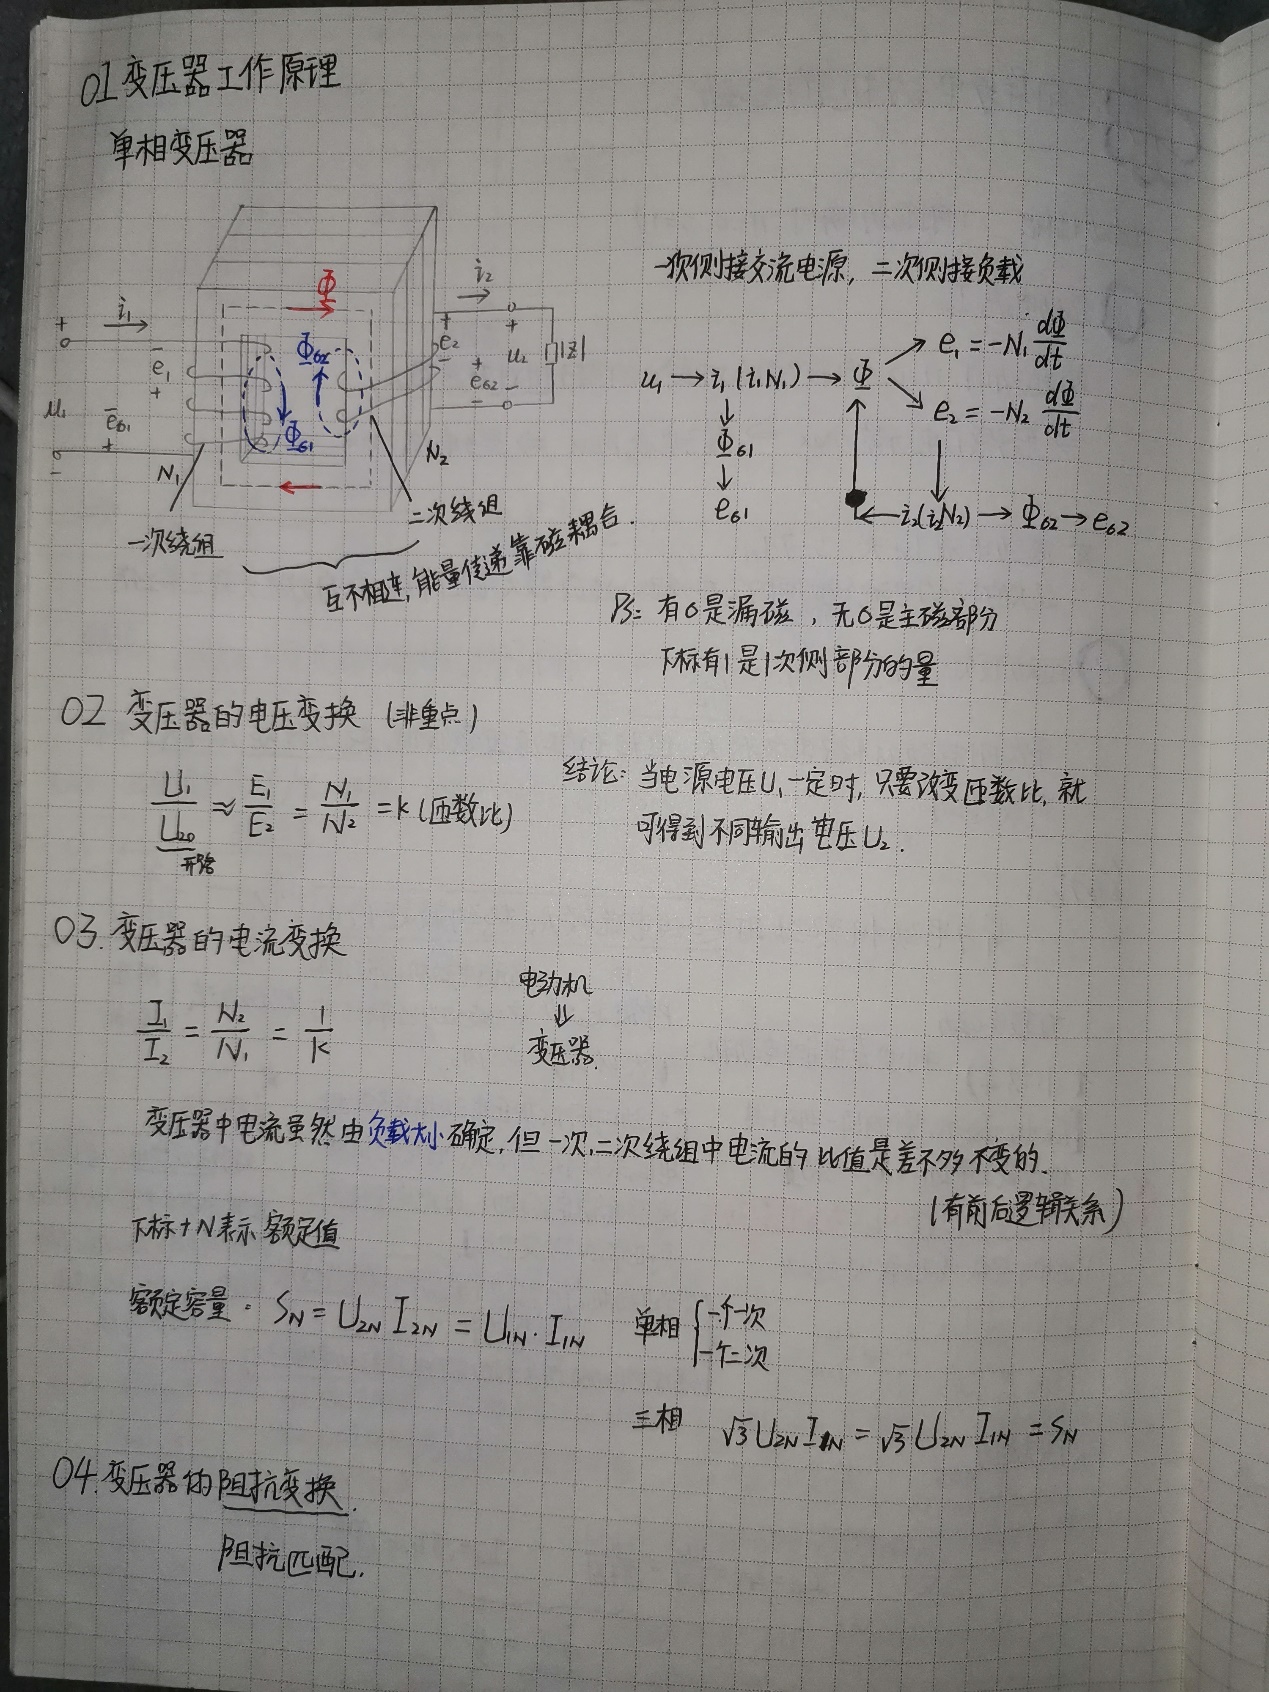 01 变压器工作原理
单相变压器
Φ
i₁
i₂
+
−
e₁
+
u₁
−
eσ₁
+
−
N₁
Φσ₂
Φσ₁
+
e₂
−
+
eσ₂
−
+
u₂
−
|Z|
N₂
一次绕组
二次绕组
互不相连,能量传递靠磁耦合.
一次侧接交流电源, 二次侧接负载
u₁ → i₁ (i₁N₁) → Φ
e₁ = -N₁ dΦ/dt
e₂ = -N₂ dΦ/dt
↓
Φσ₁
↓
eσ₁
← i₂(i₂N₂) → Φσ₂ → eσ₂
PS: 有σ是漏磁 , 无σ是主磁部分
下标有1是1次侧部分的量
02 变压器的电压变换 (非重点)
U₁/U₂₀ ≈ E₁/E₂ = N₁/N₂ = K (匝数比)
开路
结论: 当电源电压U₁一定时, 只要改变匝数比, 就
可得到不同输出电压U₂.
03. 变压器的电流变换
I₁/I₂ = N₂/N₁ = 1/K
电动机
⇓
变压器.
变压器中电流虽然由负载大小确定, 但一次,二次绕组中电流的比值是差不多不变的.
(有前后逻辑关系)
下标+N表示额定值
额定容量: S_N = U₂N I₂N = U₁N · I₁N
单相 { 一个一次
一个二次
三相 √3 U₂N I₁N = √3 U₂N I₁N = S_N
04. 变压器的阻抗变换.
阻抗匹配.